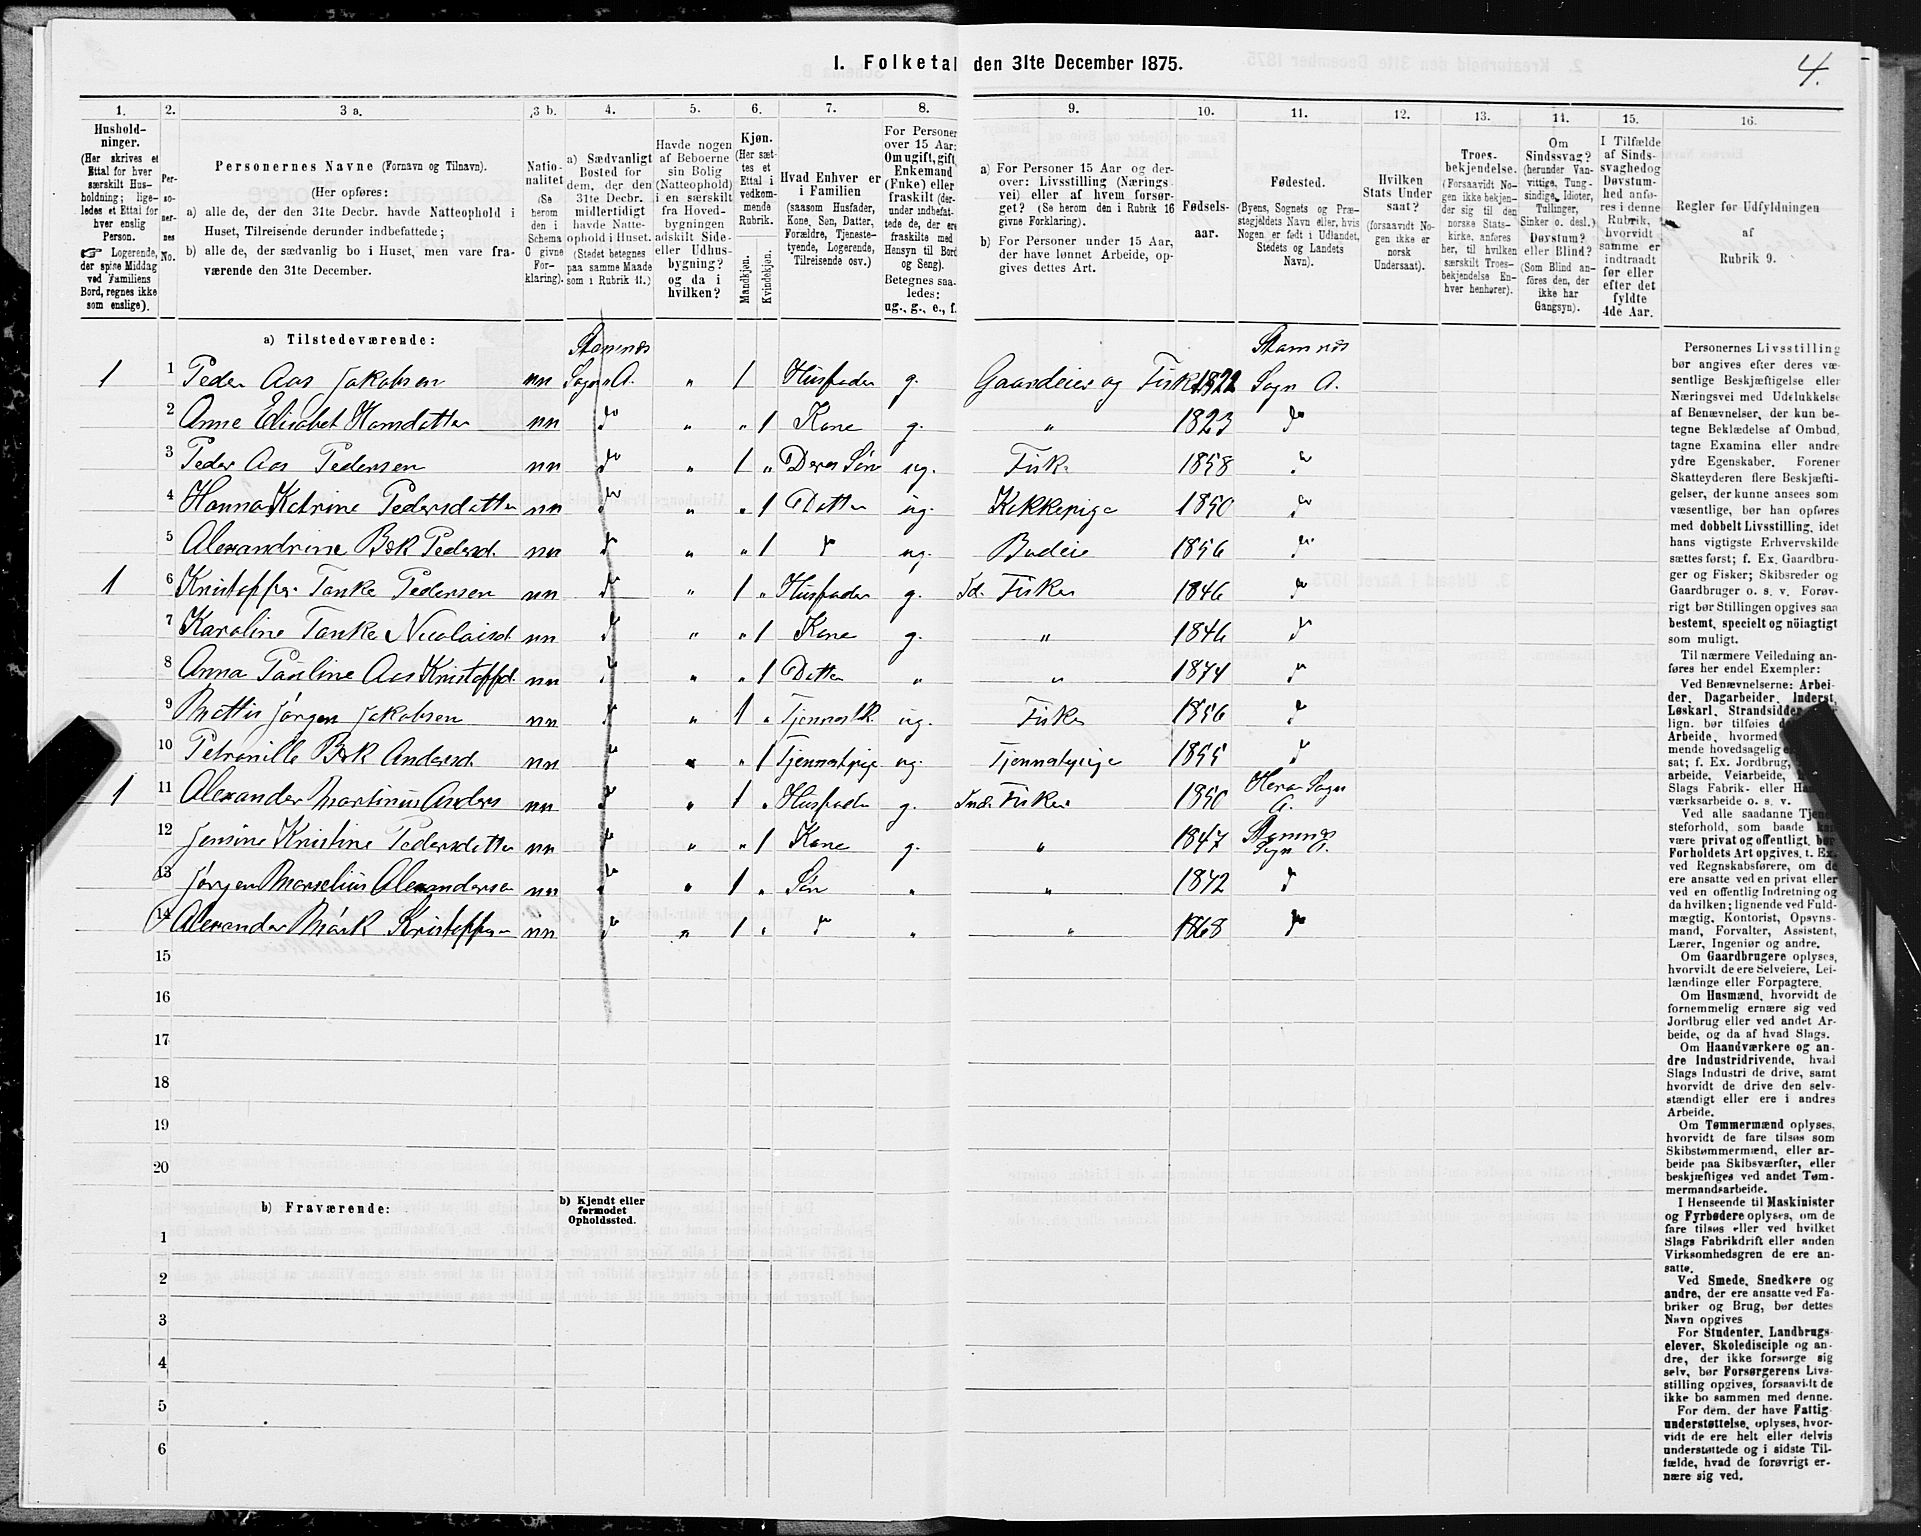 1. Folketal den 31te December 1875.
4.
1. 2. 3 a. 3 b. 4. 5. 6. 7. 8. 9. 10. 11. 12. 13. 14. 15. 16.
Hushold-
ninger.
(Her skrives et
Ettal for hver
særskilt Hus-
holdning; lige-
ledes et Ettal for
hver enslig
Person.
Logerende,
der spise Middag
ved Familiens
Bord, regnes ikke
som enslige).
Per-
so-
ner-
nes
No.
Personernes Navne (Fornavn og Tilnavn).
(Her opføres:
a) alle de, der den 31te Decbr. havde Natteophold i
Huset, Tilreisende derunder indbefattede;
b) alle de, der sædvanlig bo i Huset, men vare fra-
værende den 31te December.
Natio-
nalitet
(Se
herom
den i
Schema
C givne
For-
klaring).
a) Sædvanligt
Bosted for
dem, der den
31te Decbr.
midlertidigt
havde Natte-
ophold i Huset.
(Stedet betegnes
paa samme Maade
som i Rubrik 11.)
Havde nogen
af Beboerne
sin Bolig
(Natteophold)
i en særskilt
fra Hoved-
bygningen
adskilt Side-
eller Udhus-
bygning?
og da i
hvilken?
Kjøn.
(Her sæt-
tes et
Ettal i
vedkom-
mende
Rubrik.
Mandkjøn.
Kvindekjøn.
Hvad Enhver er
i Familien
(saasom Husfader,
Kone, Søn, Datter,
Forældre, Tjeneste-
tyende, Logerende,
Tilreisende osv.)
For Personer
over 15 Aar:
Om ugift, gift,
Enkemand
(Enke) eller
fraskilt (der-
under indbefat-
tede de, der ere
fraskilte med
Hensyn til Bord
og Seng).
Betegnes saa-
ledes:
ug., g., e., f.
a) For Personer 15 Aar og der-
over: Livsstilling (Nærings-
vei) eller af hvem forsør-
get? (Se herom den i Rubrik 16
givne Forklaring).
b) For Personer under 15 Aar,
der have lønnet Arbeide, op-
gives dettes Art.
Fødsels-
aar.
Fødested.
(Byens, Sognets og Præ-
stegjeldets Navn eller, hvis
Nogen er født i Udlandet,
Stedets og Landets
Navn).
Hvilken
Stats Under
saat?
(forsaavidt No-
gen ikke er
norsk
Undersaat).
Troes-
bekjendelse.
(Forsaavidt No-
gen ikke bekjen-
der sig til den
norske Stats-
kirke, anføres
her, til hvilken
særskilt Troes-
bekjendelse En-
hver henhører).
Om
Sindssvag?
(herunder Van-
vittige, Tung-
sindige, Idioter,
Tullinger,
Sinker o. desl.)
Døvstum?
eller Blind?
(Som Blind an-
føres den, der
ikke har
Gangsyn).
I Tilfælde
af Sinds-
svaghed og
Døvstum-
hed anfø-
res i denne
Rubrik,
hvorvidt
samme er
indtraadt
før eller
efter det
fyldte
4de Aar.
Regler for Udfyldningen
af
Rubrik 9.
a) Tilstedeværende:
Stamnæs Stamnæs
1 1 Peder Aas Jakobsen nn Sogn A. " 1 Husfader g. Gaardeier og Fisker 1822 Sogn A.
2 Anne Elisabet Hansdatter nn do " " 1 Kone g. " 1823 do
3 Peder Aas Pedersen nn do " 1 " Deres Søn ug. Fisker 1858 do
4 Hanna Katrine Pedersdatter nn do " " 1 Datter ug. Kokkepige 1850 do
5 Alexandrine Bæk Pedersd. nn do " " 1 do ug. Budeie 1856 do
1 6 Kristoffer Tanke Pedersen nn do " 1 " Husfader g. Id. Fisker 1846 do
7 Karoline Tanke Nicolaisd nn do " " 1 Kone g. " 1846 do
8 Anna Pauline Aas Kristoffd. nn do " " 1 Datter " " 1874 do
9 Mattis Jørgen Jakobsen nn do " 1 " Tjenestk. ug. Fisker 1856 do
10 Petronille Bæk Andersd. nn do " " 1 Tjenestpige ug. Tjenestepige 1855 do
1 11 Alexander Martinus Anders nn do " 1 " Husfader g. Ind. Fisker 1850 Herø Sogn A.
12 Jensine Kristine Pedersdatter nn do " " 1 Kone g. " 1847 Stamnæs Sogn A.
13 Jørgen Marselius Alexandersen nn do " 1 " Søn " " 1872 do
14 Alexander Mørk Kristoffersen nn do " 1 " do " " 1868 do
15
16
17
18
19
20
b) Fraværende:
b) Kjendt eller
formodet
Opholdssted.
1
2
3
4
5
6
Personernes Livsstilling
bør angives efter deres væ-
sentlige Beskjæftigelse eller
Næringsvei med Udelukkelse
af Benævnelser, der kun be-
tegne Beklædelse af Ombud,
tagne Examina eller andre
ydre Egenskaber. Forener
Skatteyderen flere Beskjæfti-
gelser, der kunne ansees som
væsentlige, bør han opføres
med dobbelt Livsstilling, idet
hans vigtigste Erhvervskilde
sættes først; f. Ex. Gaardbru-
ger og Fisker; Skibsreder og
Gaardbruger o. s. v. Forøv-
rigt bør Stillingen opgives saa
bestemt, specielt og nöiagtigt
som muligt.
Til nærmere Veiledning an-
føres her endel Exempler:
Ved Benævnelserne: Arbei-
der, Dagarbeider, Inderst,
Løskarl, Strandsidder
lign. bør tilføies
Arbeide, hvormed
mende hovedsagelig
sat; f. Ex. Jordbrug,
arbeide, Veiarbeide,
Slags Fabrik- eller
værksarbeide o. s. v.
Ved alle saadanne Tjene-
steforhold, som baade kan
være privat og offentligt, bør
Forholdets Art opgives, t. Ex.
ved Regnskabsførere, om de
ere ansatte ved en privat eller
ved en offentlig Indretning og
da hvilken; lignende ved Fuld-
mægtig, Kontorist, Opsyns-
mand, Forvalter, Assistent,
Lærer, Ingeniør og andre.
Om Gaardbrugere oplyses,
hvorvidt de ere Selveiere, Lei-
lændinge eller Forpagtere.
Om Husmænd, hvorvidt de
fornemmelig ernære sig ved
Jordbrug eller ved andet Ar-
beide, og da af hvad Slags.
Om Haandværkere og an-
dre Industridrivende, hvad
Slags Industri de drive, samt
hvorvidt de drive den selv-
stændigt eller ere i andres
Arbeide.
Om Tømmermænd oplyses,
hvorvidt de fare tilsøs som
Skibstømmermænd, eller ar-
beide paa Skibsværfter, eller
beskjæftiges ved andet Tøm-
mermandsarbeide.
I Henseende til Maskinister
og Fyrbødere oplyses, om de
fare tilsøs eller ved hvilket
Slags Fabrikdrift eller anden
Virksomhedsgren de ere an-
satte.
Ved Smede, Snedkere og
andre, der ere ansatte ved Fa-
briker og Brug, bør dettes
Navn opgives
For Studenter, Landbrugs-
elever, Skoledisciple og an-
dre, der ikke forsørge sig
selv, bør Forsørgerens Livs-
stilling opgives, forsaavidt de
ikke bo sammen med denne.
For dem, der have Fattig-
understøttelse, oplyses, hvor-
vidt de ere helt eller delvis
understøttede og i sidste Til-
fælde, hvad de forøvrigt er-
nære sig ved.